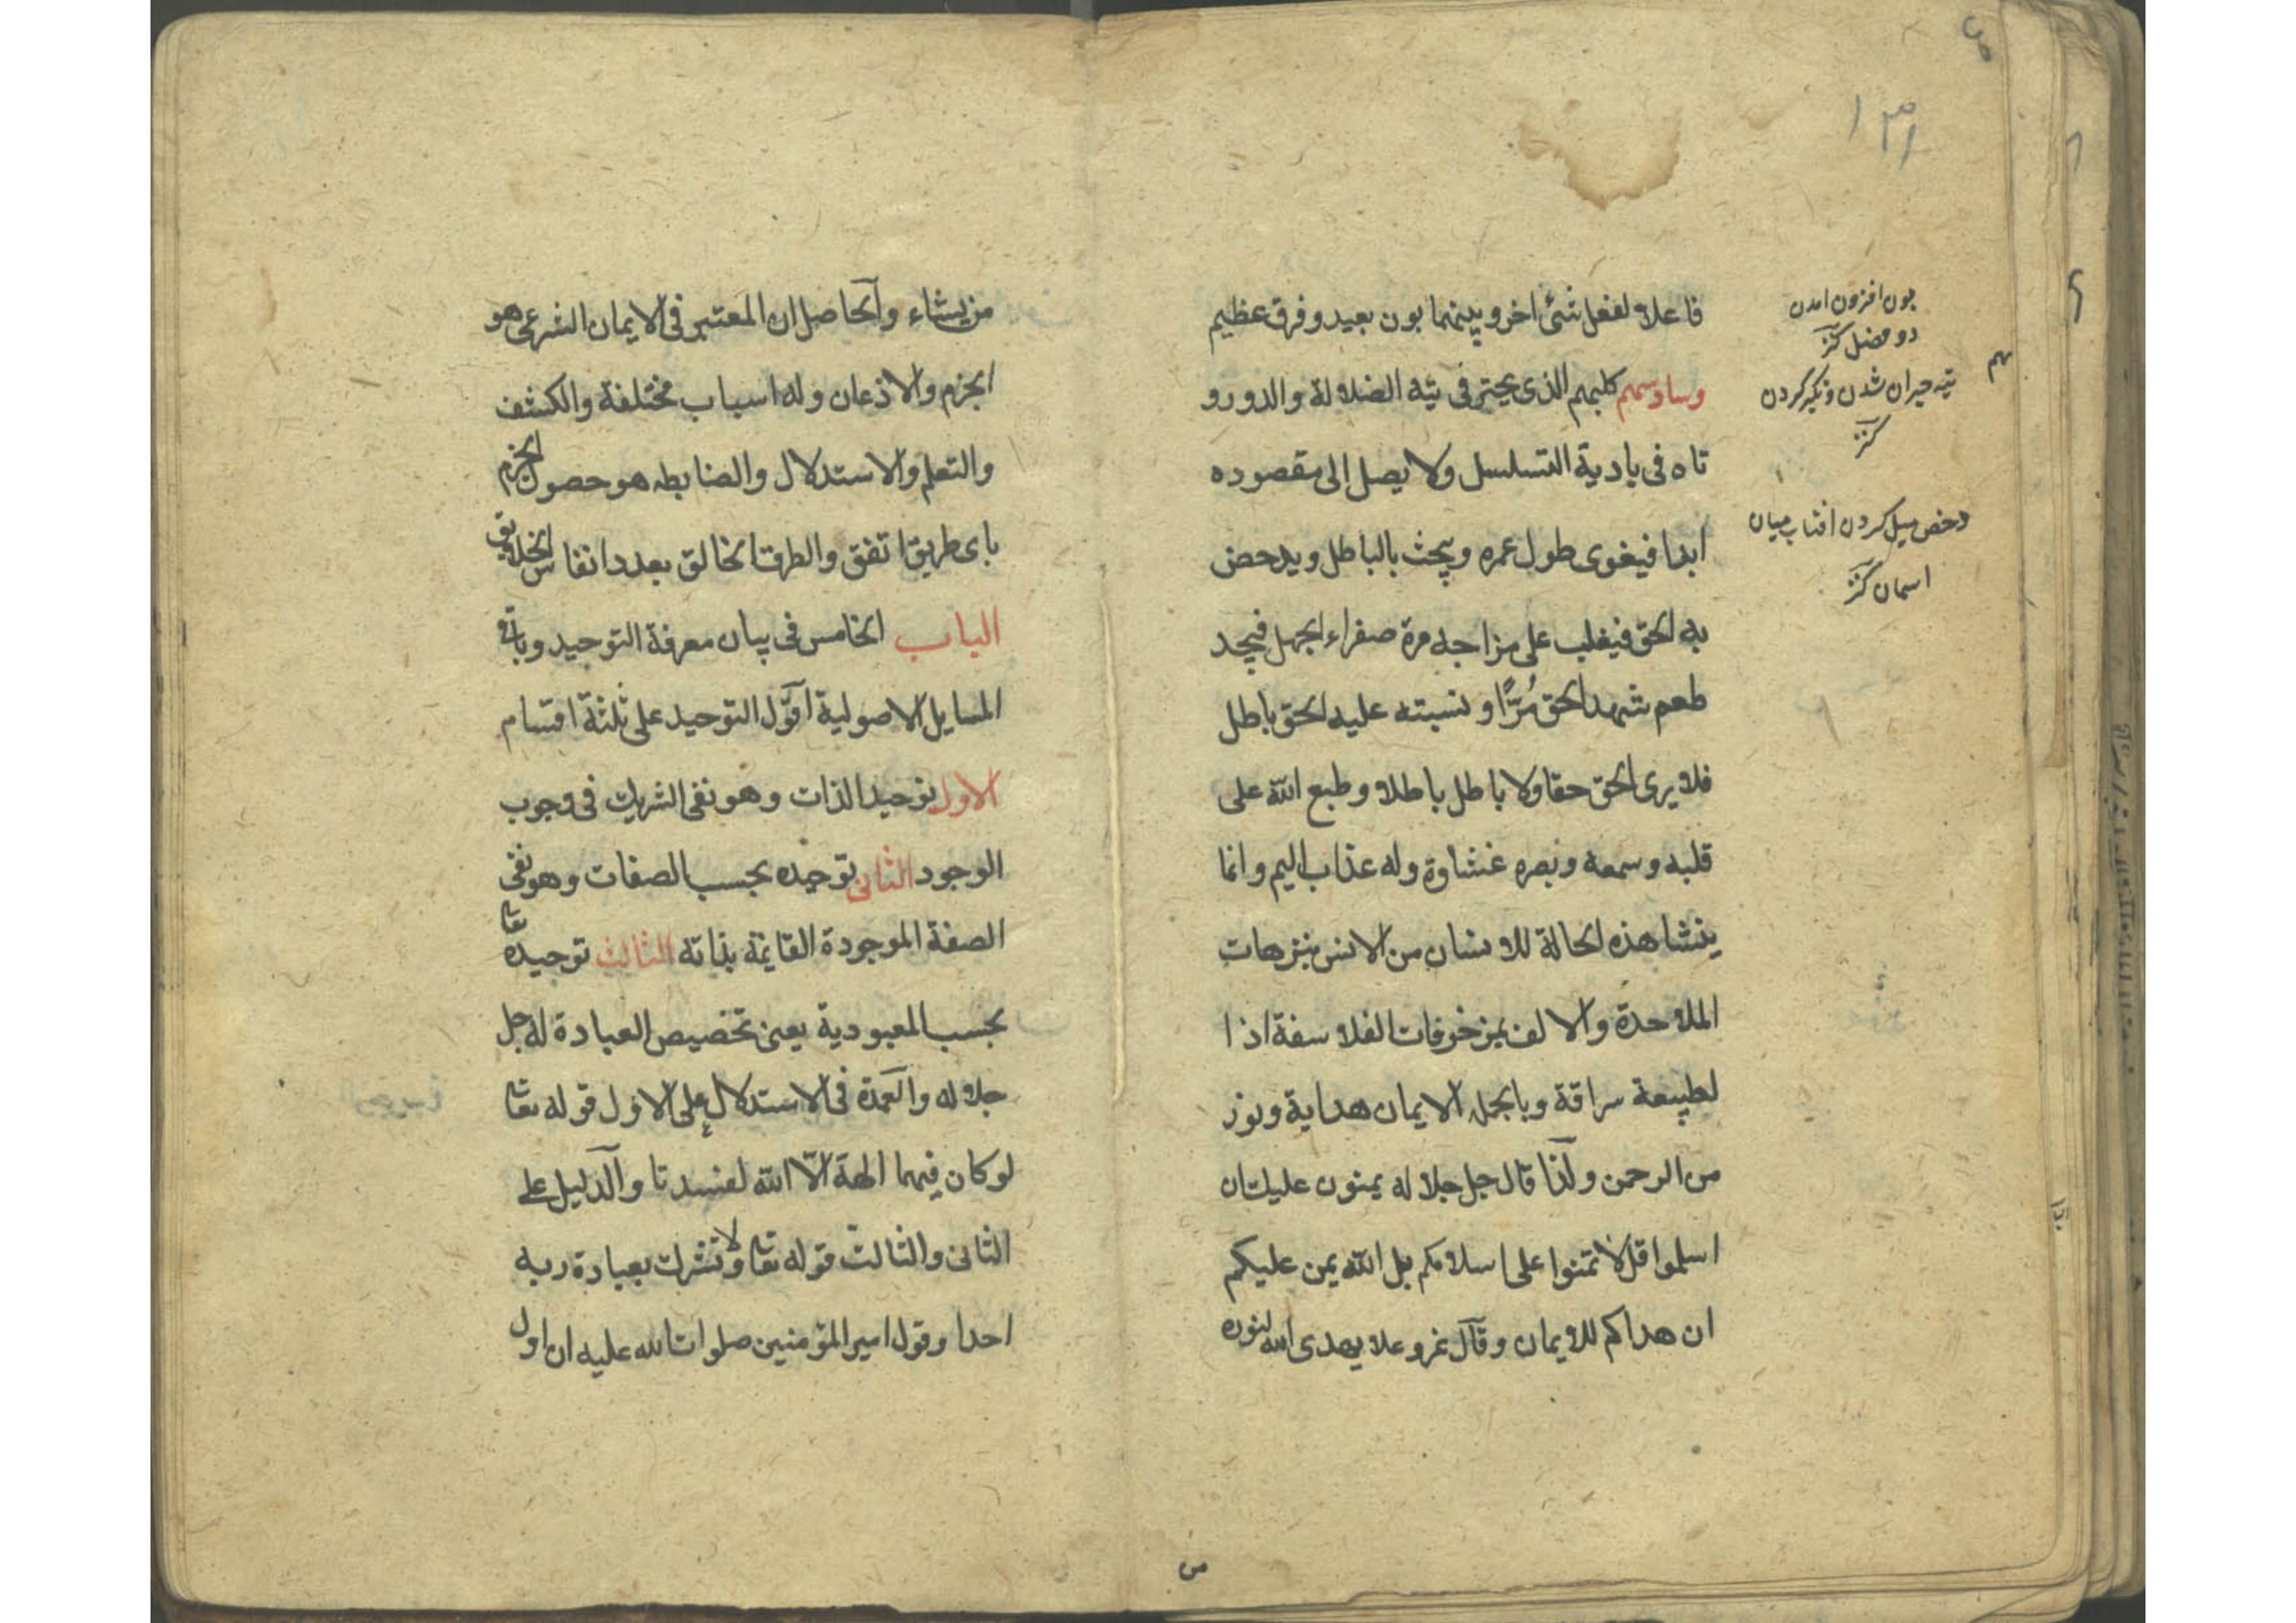 ١٣١
فاعلا لفعل شئ اخر وبينهما بون بعيد وفرق عظيم
وسادسهم كلبهم الذى يحتر فى تيه الضلالة والدورو
تاه فى بادية التسلسل ولا يصل إلى مقصوده
ابدا فيغوى طول عمره ويبحث بالباطل ويدحض
به الحق فيغلب على مزاجه مرة صفراء الجهل فيجد
طعم شهد الحق مُرًّا ونسبته عليه الحق باطل
فلا يرى الحق حقا ولا باطل باطلا وطبع الله على
قلبه وسمعه وبصره غشاوة وله عذاب اليم وانما
ينشا هذه الحالة للانسان من الانس بنزهات
الملاحدة والالف بمزخرفات الفلاسفة اذا
لطبيعة سراقة وبالجمله الايمان هداية ونور
من الرحمن ولذا قال جل جلاله يمنون عليك ان
اسلموا قل لا تمنوا على اسلامكم بل الله يمن عليكم
ان هداكم للايمان وقال عز وعلا يهدى الله لنوره
بون افزون امدن
دو فضل كنز
تيه حيران شدن وتكبر كردن
كنز
دحض ميل كردن افتاب ميان
اسمان كنز
من يشاء والحاصل ان المعتبر فى الايمان الشرعى هو
الجزم والاذعان وله اسباب مختلفة والكشف
والتعلم والاستدلال والضابطه هو حصول الجزم
باى طريق اتفق والطرق الخالق بعدد انفاس الخلايق
الباب الخامس فى بيان معرفة التوحيد وباقى
المسايل الاصولية اقول التوحيد على ثلثة اقسام
الاول توحيد الذات وهو نفى الشريك فى وجوب
الوجود الثانى توحيده بحسب الصفات وهو نفى
الصفة الموجودة القايمة بذاته الثالث توحيده تعا
بحسب المعبودية يعنى تخصيص العبادة له جل
جلاله والعمدة فى الاستدلال على الاول قوله تعا
لو كان فيهما الهة الّا الله لفسدتا والدليل على
الثانى والثالث قوله تعا ولا تشرك بعبادة ربه
احدا وقول امير المؤمنين صلوات الله عليه ان اول